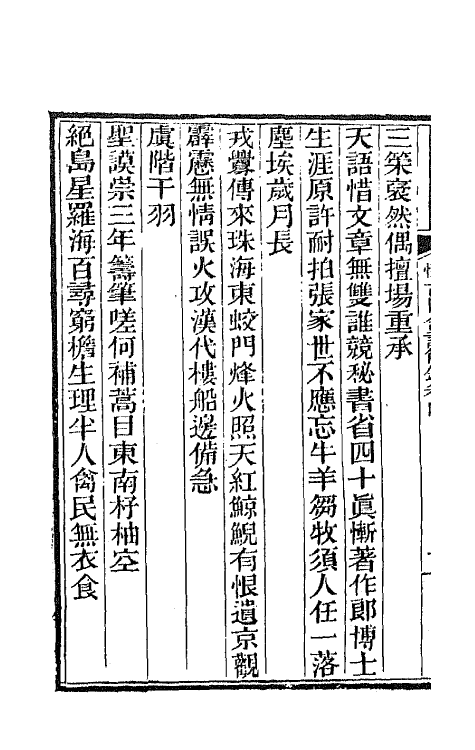 三策裒然偶擅場重承
天語惜文章無雙誰競秘書省四十眞慚著作郎博士
生涯原許耐拍張家世不應忘牛羊芻牧須人任一落
塵埃歲月長
戎釁傳來珠海東蛟門烽火照天紅鯨鯢有恨遺京觀
霹靂無情誤火攻漢代樓船邊備急
虞階干羽
聖謨崇三年籌筆嗟何補蒿目東南杼柚空
絕島星羅海百尋窮檐生理半人禽民無衣食